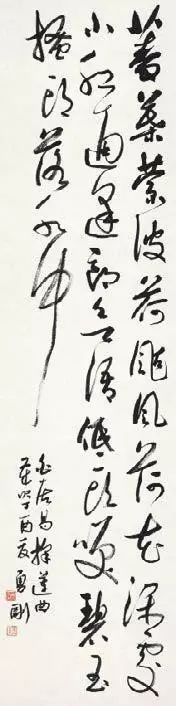 菱葉縈波荷飐風荷花深處
小船通逢郎欲語低頭笑碧玉
搔頭落水中
白居易採蓮曲
酉夏勇剛